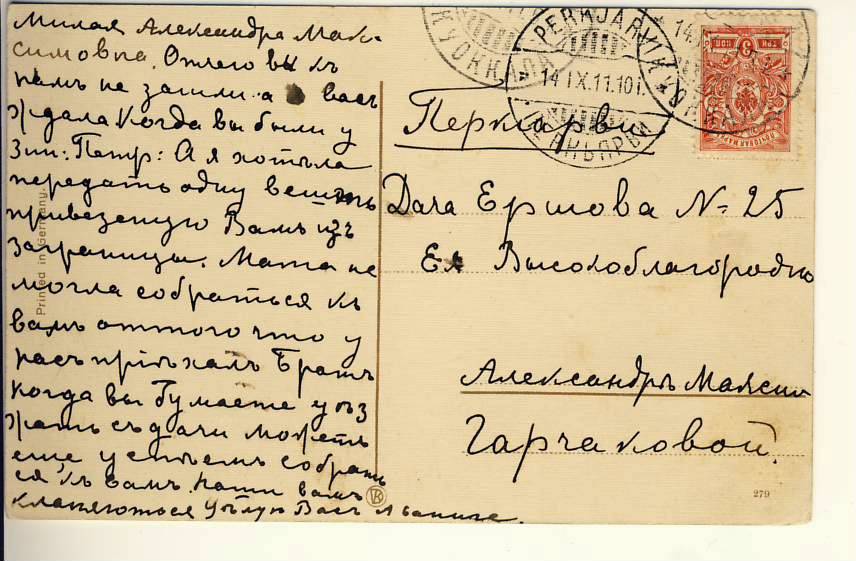 Милая Александра Мак-
симовна. Отчего вы къ
намъ не зашли. а васъ
ждала когда вы были у
Зин: Петр: А я хотѣла
передать одну вещь
привезеную Вамъ изъ
Заграницы. Мама не
могла собраться къ
вамъ оттого что у
насъ пріѣхалъ Братъ
когда вы думаете уѣз
жать съ дачи можетъ
еще успѣемъ собрать
ся къ вамъ. Наши вамъ
кланяются Цѣлую Васъ
Printed in Germany.
KYÖKKALA
PERKJÄRVI
14.IX.11.10
ПЕРКЪЯРВИ
14.
3
КОП
ПОЧТОВАЯ МАРКА
Перкіярви
Дача Ершова № 25
Ея Высокоблагородію
Александръ Максим
Гарчаковой.
279